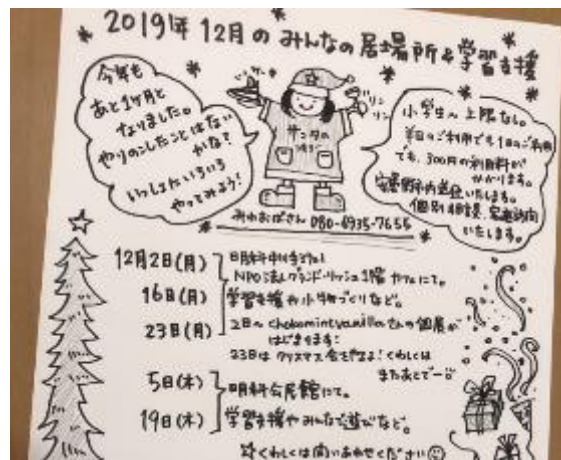 2019年12月のみんなの居場所&学習支援
今年も
あと1ヶ月と
なりました。
やりのこしたことはない
かな?
いっしょにいろいろ
やってみよう!
サンタの
小学生〜上限なし。
半日のご利用でも1日のご利用
でも、300円の利用料が
かかります。
安曇野市内送迎いたします。
個別相談、家庭訪問
いたします。
みわおばさん 080-6935-7655
12月2日(月)
16日(月)
23日(月)
明科
NPO法人グランド・リッシュ1階 カフェにて。
学習支援や小物づくりなど。
2日〜chokomintvanillaさんの個展が
はじまります!
23日は クリスマス会だよ!くわしくは
またあとでー
5日(木)
19日(木)
明科公民館にて。
学習支援やみんなで遊びなど。
くわしくは問いあわせください